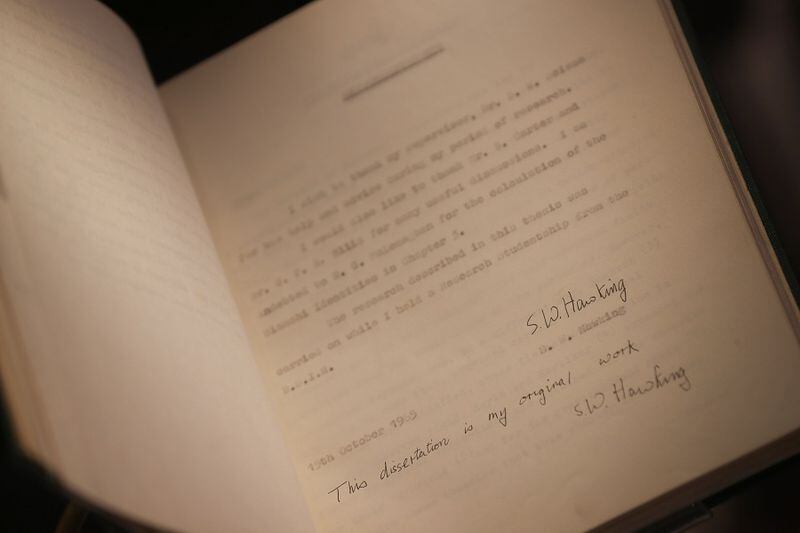 I wish to thank my supervisor, Dr. D. W. Sciama
for his help and advice during my period of research.
I would also like to thank Mr. B. Carter and
Mr. G. F. R. Ellis for many useful discussions. I am
indebted to R. G. McLenaghan for the calculation of the
Bianchi Identities in Chapter 3.
The research described in this thesis was
carried on while I held a Research Studentship from the
D.S.I.R.
S.W. Hawking
S. W. Hawking
15th October 1965
This dissertation is my original work
S.W. Hawking